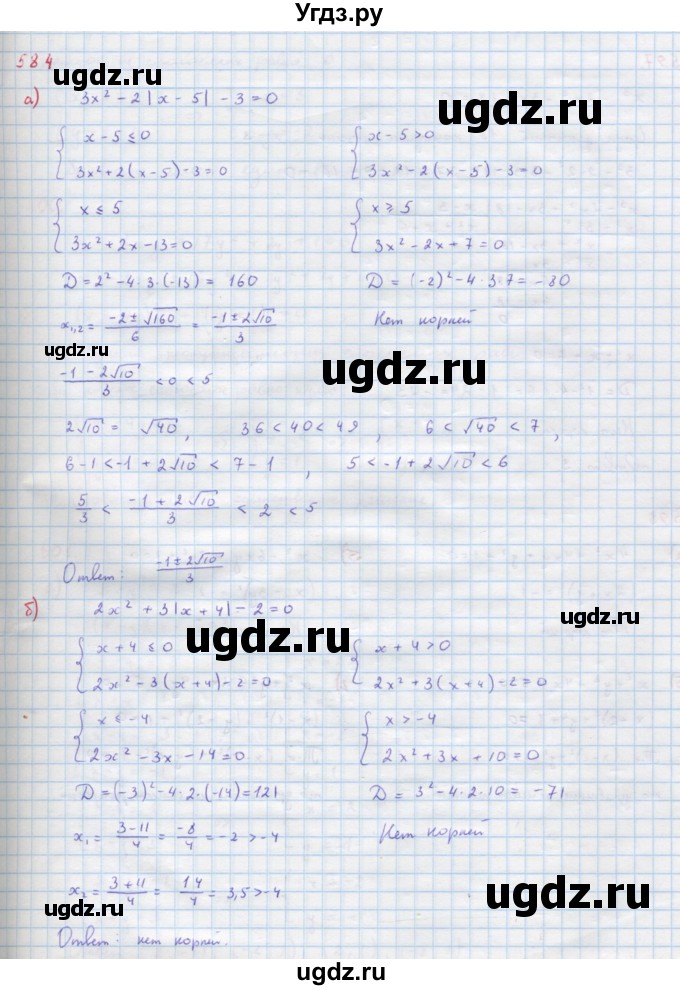 Угдз.ру
584
а) 3x² - 2|x - 5| - 3 = 0
ugdz.ru
{ x - 5 ≤ 0
3x² + 2(x - 5) - 3 = 0
{ x - 5 > 0
3x² - 2(x - 5) - 3 = 0
ugdz.ru
ugdz.ru
{ x ≤ 5
3x² + 2x - 13 = 0
{ x ≥ 5
3x² - 2x + 7 = 0
D = 2² - 4 · 3 · (-13) = 160
D = (-2)² - 4 · 3 · 7 = -80
x₁,₂ = (-2 ± √160)/6 = (-1 ± 2√10)/3
Нет корней
ugdz.ru
ugdz.ru
(-1 - 2√10)/3 < 0 < 5
2√10 = √40, 36 < 40 < 49, 6 < √40 < 7,
6 - 1 < -1 + 2√10 < 7 - 1, 5 < -1 + 2√10 < 6
5/3 < (-1 + 2√10)/3 < 2 < 5
ugdz.ru
Ответ: (-1 ± 2√10)/3
б) 2x² + 3|x + 4| - 2 = 0
ugdz.ru
ugdz.ru
{ x + 4 ≤ 0
2x² - 3(x + 4) - 2 = 0
{ x + 4 > 0
2x² + 3(x + 4) - 2 = 0
{ x ≤ -4
2x² - 3x - 14 = 0
{ x > -4
2x² + 3x + 10 = 0
D = (-3)² - 4 · 2 · (-14) = 121
D = 3² - 4 · 2 · 10 = -71
x₁ = (3 - 11)/4 = -8/4 = -2 > -4
Нет корней
ugdz.ru
x₂ = (3 + 11)/4 = 14/4 = 3,5 > -4
ugdz.ru
Ответ: нет корней.
ugdz.ru